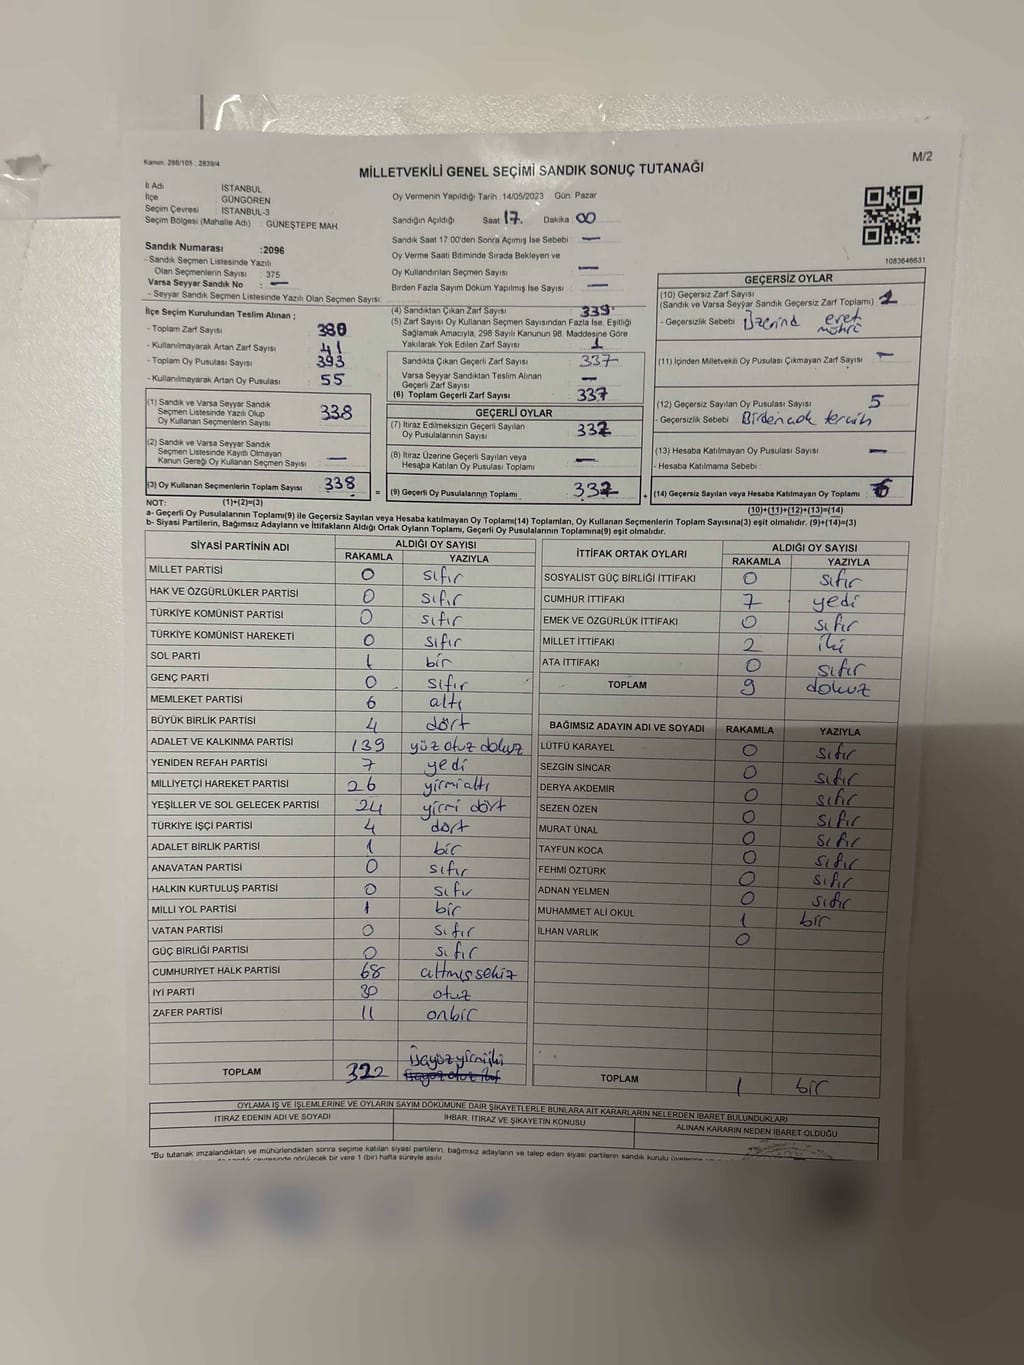 Kanun: 298/105 , 2839/4
M/2
MİLLETVEKİLİ GENEL SEÇİMİ SANDIK SONUÇ TUTANAĞI
İl Adı : İSTANBUL
İlçe : GÜNGÖREN
Seçim Çevresi : İSTANBUL-3
Seçim Bölgesi (Mahalle Adı) : GÜNEŞTEPE MAH
Oy Vermenin Yapıldığı Tarih : 14/05/2023 Gün: Pazar
Sandığın Açıldığı Saat 17. Dakika 00
Sandık Saat 17:00'den Sonra Açımış İse Sebebi —
Oy Verme Saati Bitiminde Sırada Bekleyen ve
Oy Kullandırılan Seçmen Sayısı —
Birden Fazla Sayım Döküm Yapılmış İse Sayısı : —
1083646631
Sandık Numarası :2096
- Sandık Seçmen Listesinde Yazılı
Olan Seçmenlerin Sayısı : 375
Varsa Seyyar Sandık No : —
- Seyyar Sandık Seçmen Listesinde Yazılı Olan Seçmen Sayısı:
İlçe Seçim Kurulundan Teslim Alınan ;
- Toplam Zarf Sayısı : 380
- Kullanılmayarak Artan Zarf Sayısı : 41
- Toplam Oy Pusulası Sayısı : 393
- Kullanılmayarak Artan Oy Pusulası : 55
(1) Sandık ve Varsa Seyyar Sandık
Seçmen Listesinde Yazılı Olup
Oy Kullanan Seçmenlerin Sayısı 338
(2) Sandık ve Varsa Seyyar Sandık
Seçmen Listesinde Kayıtlı Olmayan
Kanun Gereği Oy Kullanan Seçmen Sayısı —
(3) Oy Kullanan Seçmenlerin Toplam Sayısı 338
(4) Sandıktan Çıkan Zarf Sayısı : 339
(5) Zarf Sayısı Oy Kullanan Seçmen Sayısından Fazla İse, Eşitliği
Sağlamak Amacıyla, 298 Sayılı Kanunun 98. Maddesine Göre
Yakılarak Yok Edilen Zarf Sayısı : 1
Sandıkta Çıkan Geçerli Zarf Sayısı : 337
Varsa Seyyar Sandıktan Teslim Alınan
Geçerli Zarf Sayısı : —
(6) Toplam Geçerli Zarf Sayısı : 337
GEÇERLİ OYLAR
(7) İtiraz Edilmeksizin Geçerli Sayılan
Oy Pusulalarının Sayısı : 332
(8) İtiraz Üzerine Geçerli Sayılan veya
Hesaba Katılan Oy Pusulası Toplamı : —
(9) Geçerli Oy Pusulalarının Toplamı : 332
GEÇERSİZ OYLAR
(10) Geçersiz Zarf Sayısı
(Sandık ve Varsa Seyyar Sandık Geçersiz Zarf Toplamı) : 1
- Geçersizlik Sebebi : Üzerind evet
mührü
(11) İçinden Milletvekili Oy Pusulası Çıkmayan Zarf Sayısı : —
(12) Geçersiz Sayılan Oy Pusulası Sayısı : 5
- Geçersizlik Sebebi : Birden cok tercih
(13) Hesaba Katılmayan Oy Pusulası Sayısı : —
- Hesaba Katılmama Sebebi :
(14) Geçersiz Sayılan veya Hesaba Katılmayan Oy Toplamı : 6
NOT: (1)+(2)=(3) (10)+(11)+(12)+(13)=(14)
a- Geçerli Oy Pusulalarının Toplamı(9) ile Geçersiz Sayılan veya Hesaba katılmayan Oy Toplamı(14) Toplamları, Oy Kullanan Seçmenlerin Toplam Sayısına(3) eşit olmalıdır. (9)+(14)=(3)
b- Siyasi Partilerin, Bağımsız Adayların ve İttifakların Aldığı Ortak Oyların Toplamı, Geçerli Oy Pusulalarının Toplamına(9) eşit olmalıdır.
SİYASİ PARTİNİN ADI ALDIĞI OY SAYISI
RAKAMLA YAZIYLA
MİLLET PARTİSİ 0 sıfır
HAK VE ÖZGÜRLÜKLER PARTİSİ 0 sıfır
TÜRKİYE KOMÜNİST PARTİSİ 0 sıfır
TÜRKİYE KOMÜNİST HAREKETİ 0 sıfır
SOL PARTİ 1 bir
GENÇ PARTİ 0 sıfır
MEMLEKET PARTİSİ 6 altı
BÜYÜK BİRLİK PARTİSİ 4 dört
ADALET VE KALKINMA PARTİSİ 139 yüz otuz dokuz
YENİDEN REFAH PARTİSİ 7 yedi
MİLLİYETÇİ HAREKET PARTİSİ 26 yirmialtı
YEŞİLLER VE SOL GELECEK PARTİSİ 24 yirmi dört
TÜRKİYE İŞÇİ PARTİSİ 4 dört
ADALET BİRLİK PARTİSİ 1 bir
ANAVATAN PARTİSİ 0 sıfır
HALKIN KURTULUŞ PARTİSİ 0 sıfır
MİLLİ YOL PARTİSİ 1 bir
VATAN PARTİSİ 0 sıfır
GÜÇ BİRLİĞİ PARTİSİ 0 sıfır
CUMHURİYET HALK PARTİSİ 68 altmış sekiz
İYİ PARTİ 30 otuz
ZAFER PARTİSİ 11 onbir
TOPLAM 322 üçyüz yirmiiki
İTTİFAK ORTAK OYLARI ALDIĞI OY SAYISI
RAKAMLA YAZIYLA
SOSYALİST GÜÇ BİRLİĞİ İTTİFAKI 0 sıfır
CUMHUR İTTİFAKI 7 yedi
EMEK VE ÖZGÜRLÜK İTTİFAKI 0 sıfır
MİLLET İTTİFAKI 2 iki
ATA İTTİFAKI 0 sıfır
TOPLAM 9 dokuz
BAĞIMSIZ ADAYIN ADI VE SOYADI RAKAMLA YAZIYLA
LÜTFÜ KARAYEL 0 sıfır
SEZGİN SİNCAR 0 sıfır
DERYA AKDEMİR 0 sıfır
SEZEN ÖZEN 0 sıfır
MURAT ÜNAL 0 sıfır
TAYFUN KOCA 0 sıfır
FEHMİ ÖZTÜRK 0 sıfır
ADNAN YELMEN 0 sıfır
MUHAMMET ALİ OKUL 1 bir
İLHAN VARLIK 0
TOPLAM 1 bir
OYLAMA İŞ VE İŞLEMLERİNE VE OYLARIN SAYIM DÖKÜMÜNE DAİR ŞİKAYETLERLE BUNLARA AİT KARARLARIN NELERDEN İBARET BULUNDUKLARI
İTİRAZ EDENİN ADI VE SOYADI İHBAR, İTİRAZ VE ŞİKAYETİN KONUSU ALINAN KARARIN NEDEN İBARET OLDUĞU
*Bu tutanak imzalandıktan ve mühürlendikten sonra seçime katılan siyasi partilerin, bağımsız adayların ve talep eden siyasi partilerin sandık kurulu
görülecek bir yere 1 (bir) hafta süreyle asılır.